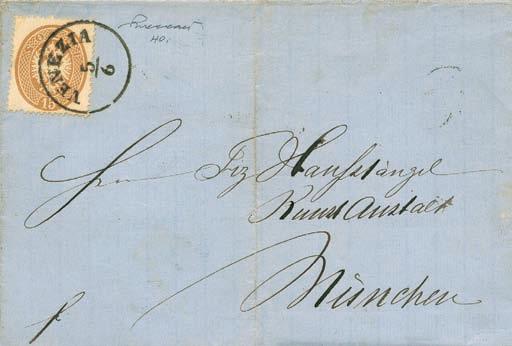 VENEZIA
5/6
15
40.
Hrn Frz Hanfstängel
Kunst Anstalt
München